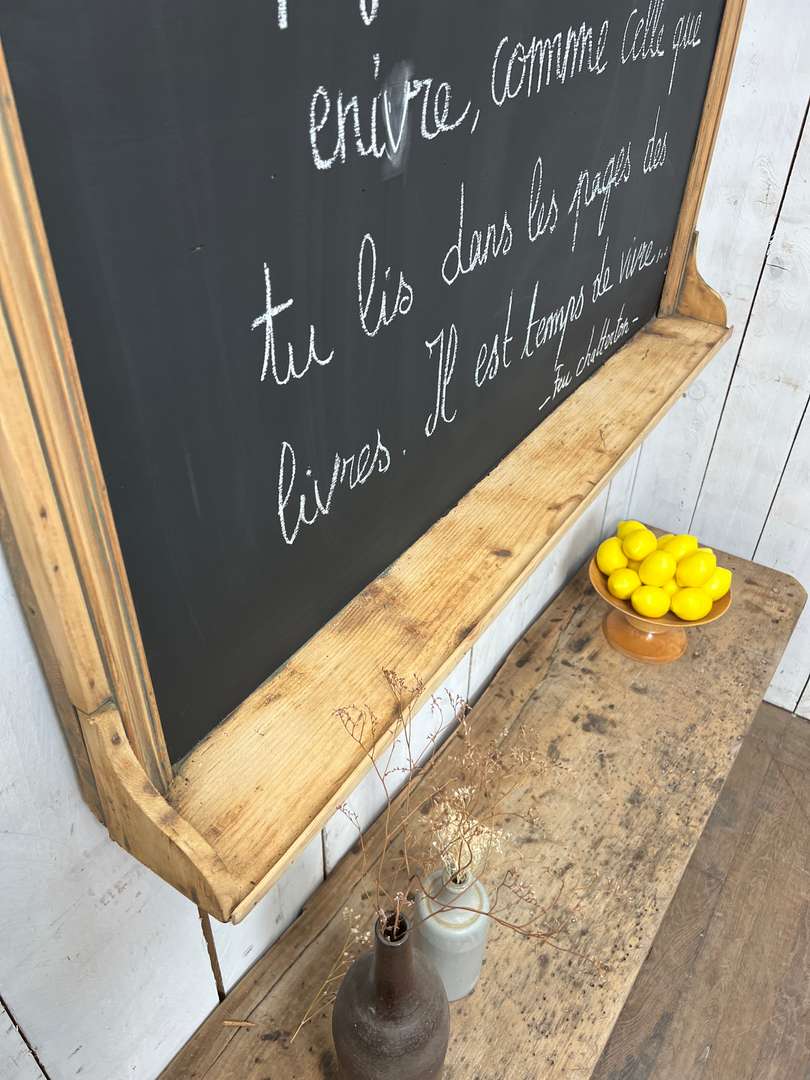 enivre, comme celle que
tu lis dans les pages des
livres. Il est temps de vivre...
- Feu chatterton -